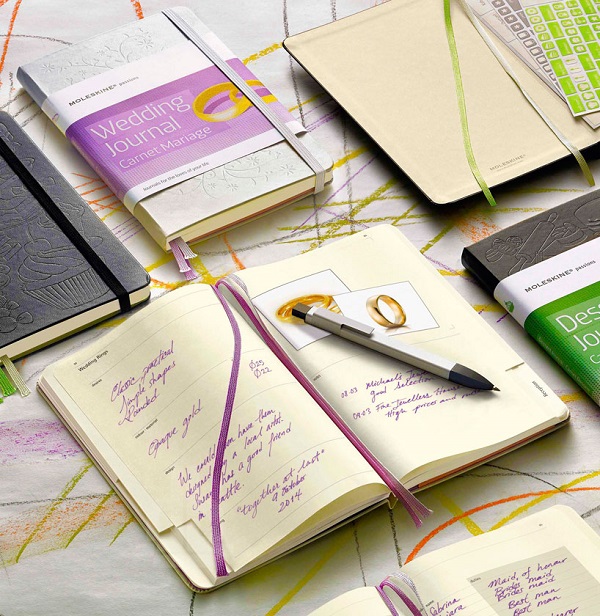 MOLESKINE® passions
Wedding
Journal
Carnet Mariage
Journals for the loves of your life
MOLESKINE®
MOLESKINE® passions
Des
Jou
Ca
Wedding Rings
Classic practical
simple shapes
Rounded
Ø25
Ø22
Opaque gold
We could even have them
designed by a local artist.
has a good friend
in Seattle.
"together at last"
9 October
2014
08.03 Michaels
good selection
09.03 Fine Jewellers
High prices and
Notes
Maid of honour
Brides maid
Brides maid
Best man
Best man